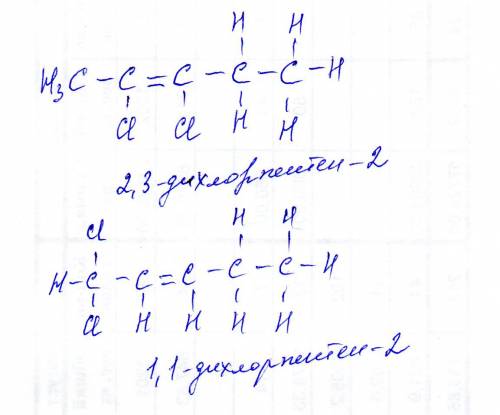 H H
H₃C – C = C – C – C – H
Cl Cl H H
2,3-дихлорпентен-2
Cl H H
H – C – C = C – C – C – H
Cl H H H H
1,1-дихлорпентен-2